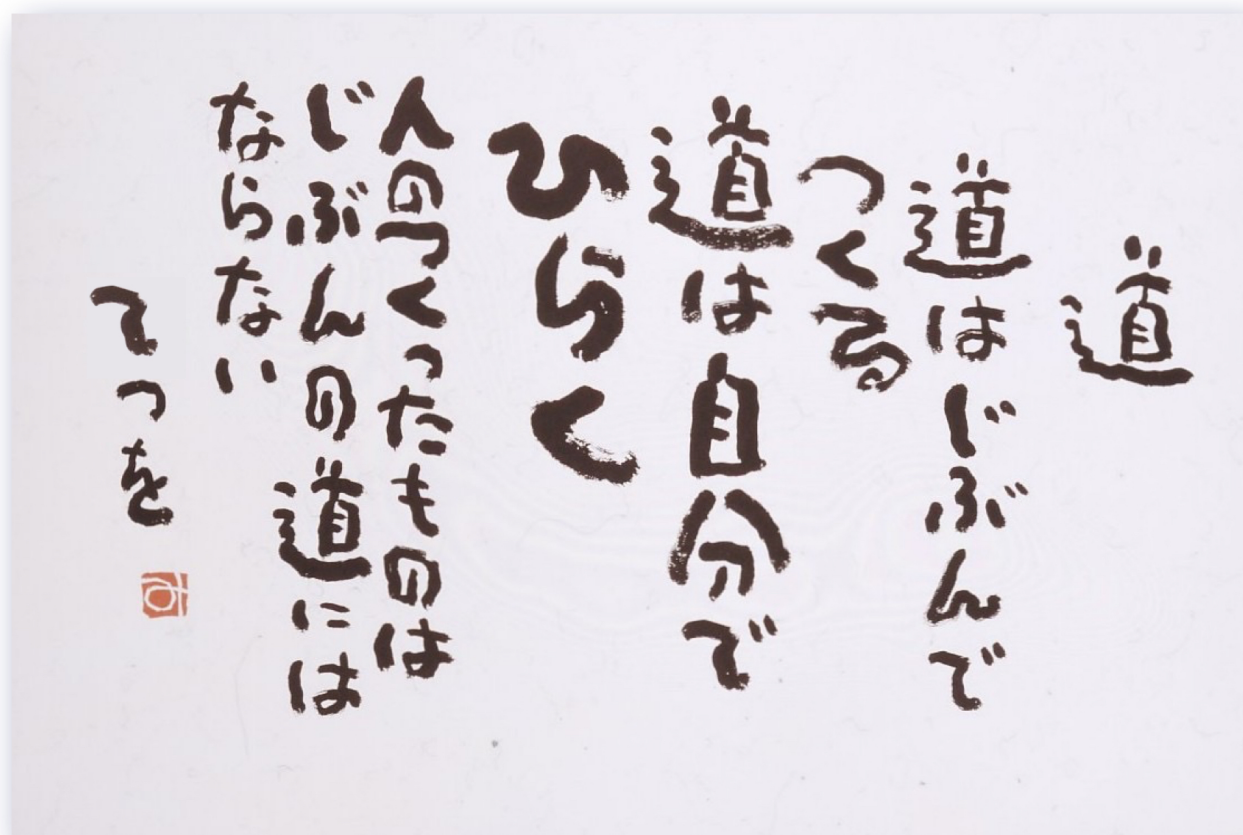 道
道はじぶんで
つくる
道は自分で
ひらく
人のつくったものは
じぶんの道には
ならない
てつを
み